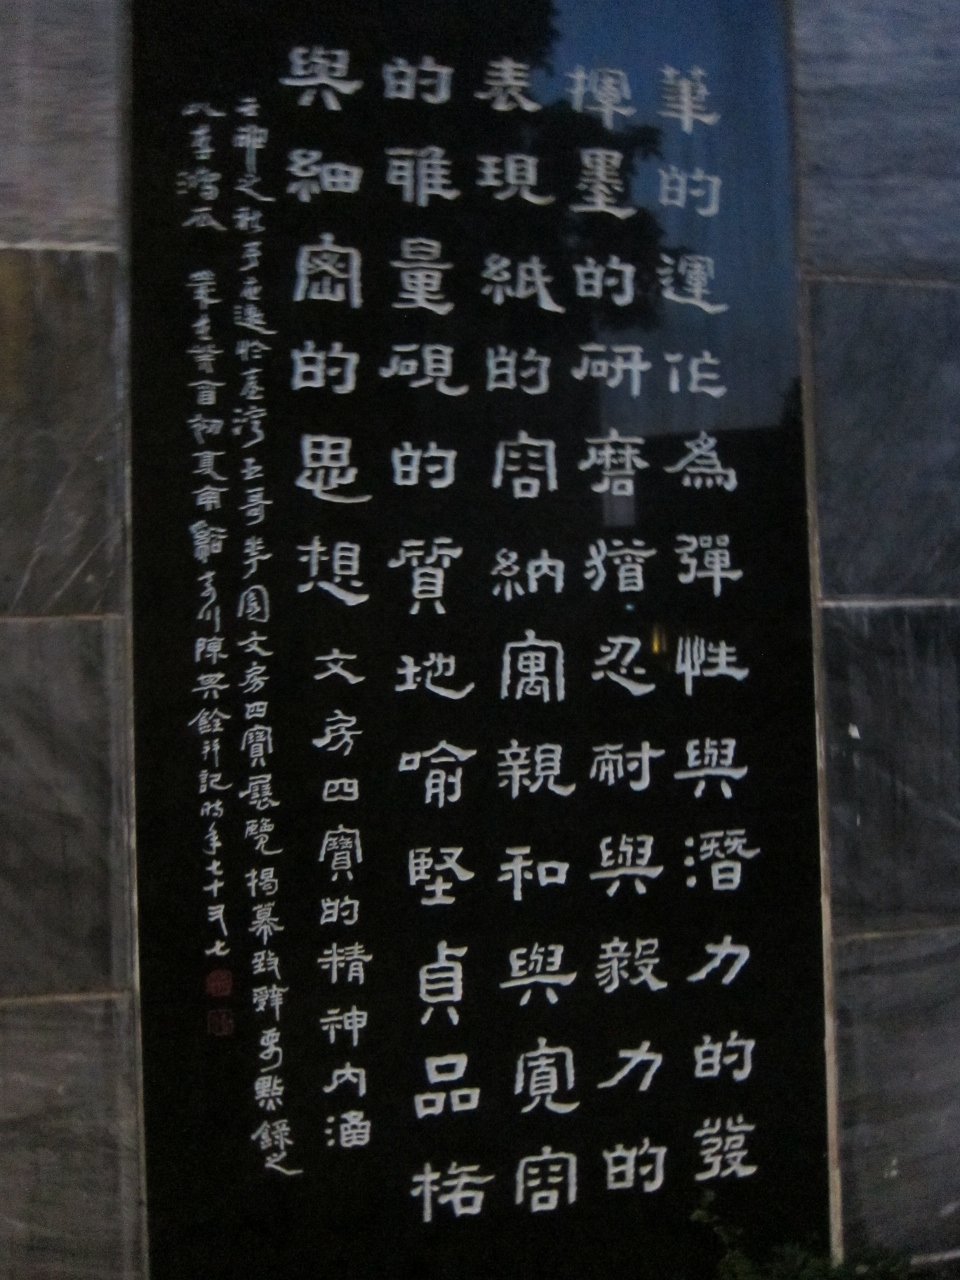 筆的運作為彈性與潛力的發
揮墨的研磨猶忍耐與毅力的
表現紙的容納寓親和與寬容
的雅量硯的質地喻堅貞品格
與細密的思想 文房四寶的精神內涵
壬 之秋 應 於臺灣 美園文房四寶展覽揭幕致辭要點錄之
以 初夏 陳其銓并記時年七十又七